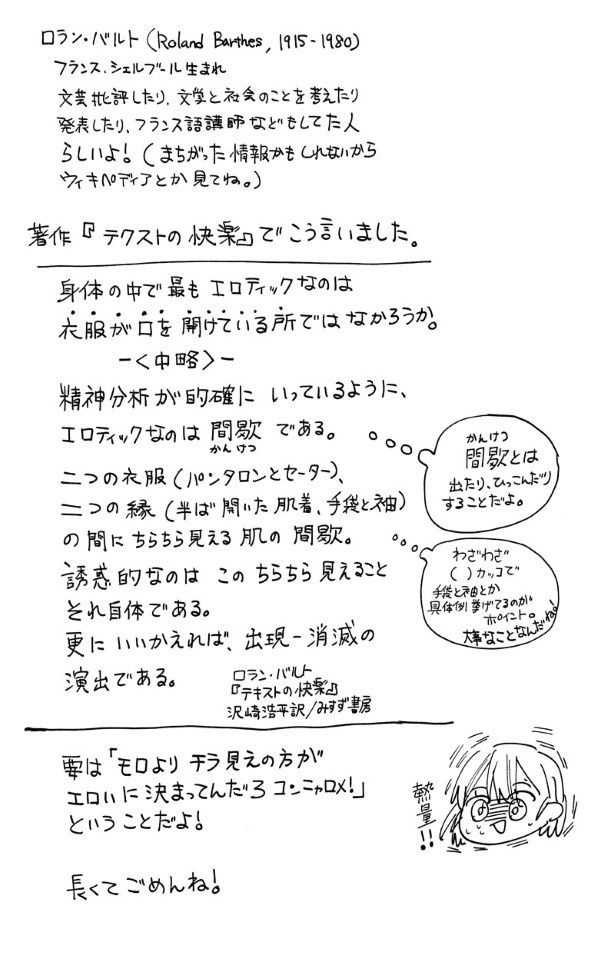 ロラン・バルト (Roland Barthes, 1915-1980)
フランス.シェルブール生まれ
文芸批評したり、文学と社会のことを考えたり
発表したり、フランス語講師などもしてた人
らしいよ!(まちがった情報かもしれないから
ウィキペディアとか見てね。)
著作『テクストの快楽』でこう言いました。
身体の中で最もエロティックなのは
衣服が口を開けている所ではなかろうか。
ー<中略>ー
精神分析が的確にいっているように、
エロティックなのは間歇である。
かんけつ
二つの衣服(パンタロンとセーター)、
二つの縁(半ば開いた肌着、手袋と袖)
の間にちらちら見える肌の間歇。
誘惑的なのはこのちらちら見えること
それ自体である。
更にいいかえれば、出現ー消滅の
演出である。
かんけつ
間歇とは
出たり、ひっこんだり
することだよ。
わざわざ
( )カッコで
手袋と袖とか
具体例挙げてるのが
ポイント。
大事なことなんだね!
ロラン・バルト
『テキストの快楽』
沢崎浩平訳/みすず書房
要は「モロよりチラ見えの方が
エロいに決まってんだろコンニャロメ!」
ということだよ!
熱量!!
長くてごめんね!